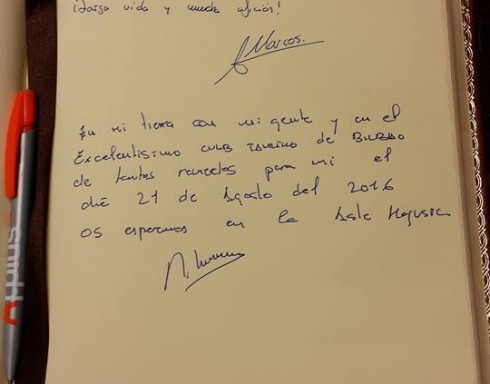 ¡Larga vida y mucha afición!
Marcos.
En mi tierra con mi gente y en el
Excelentísimo CLUB TAURINO de BILBAO
de tantos recuerdos para mi el
día 21 de Agosto del 2016
os esperamos en la